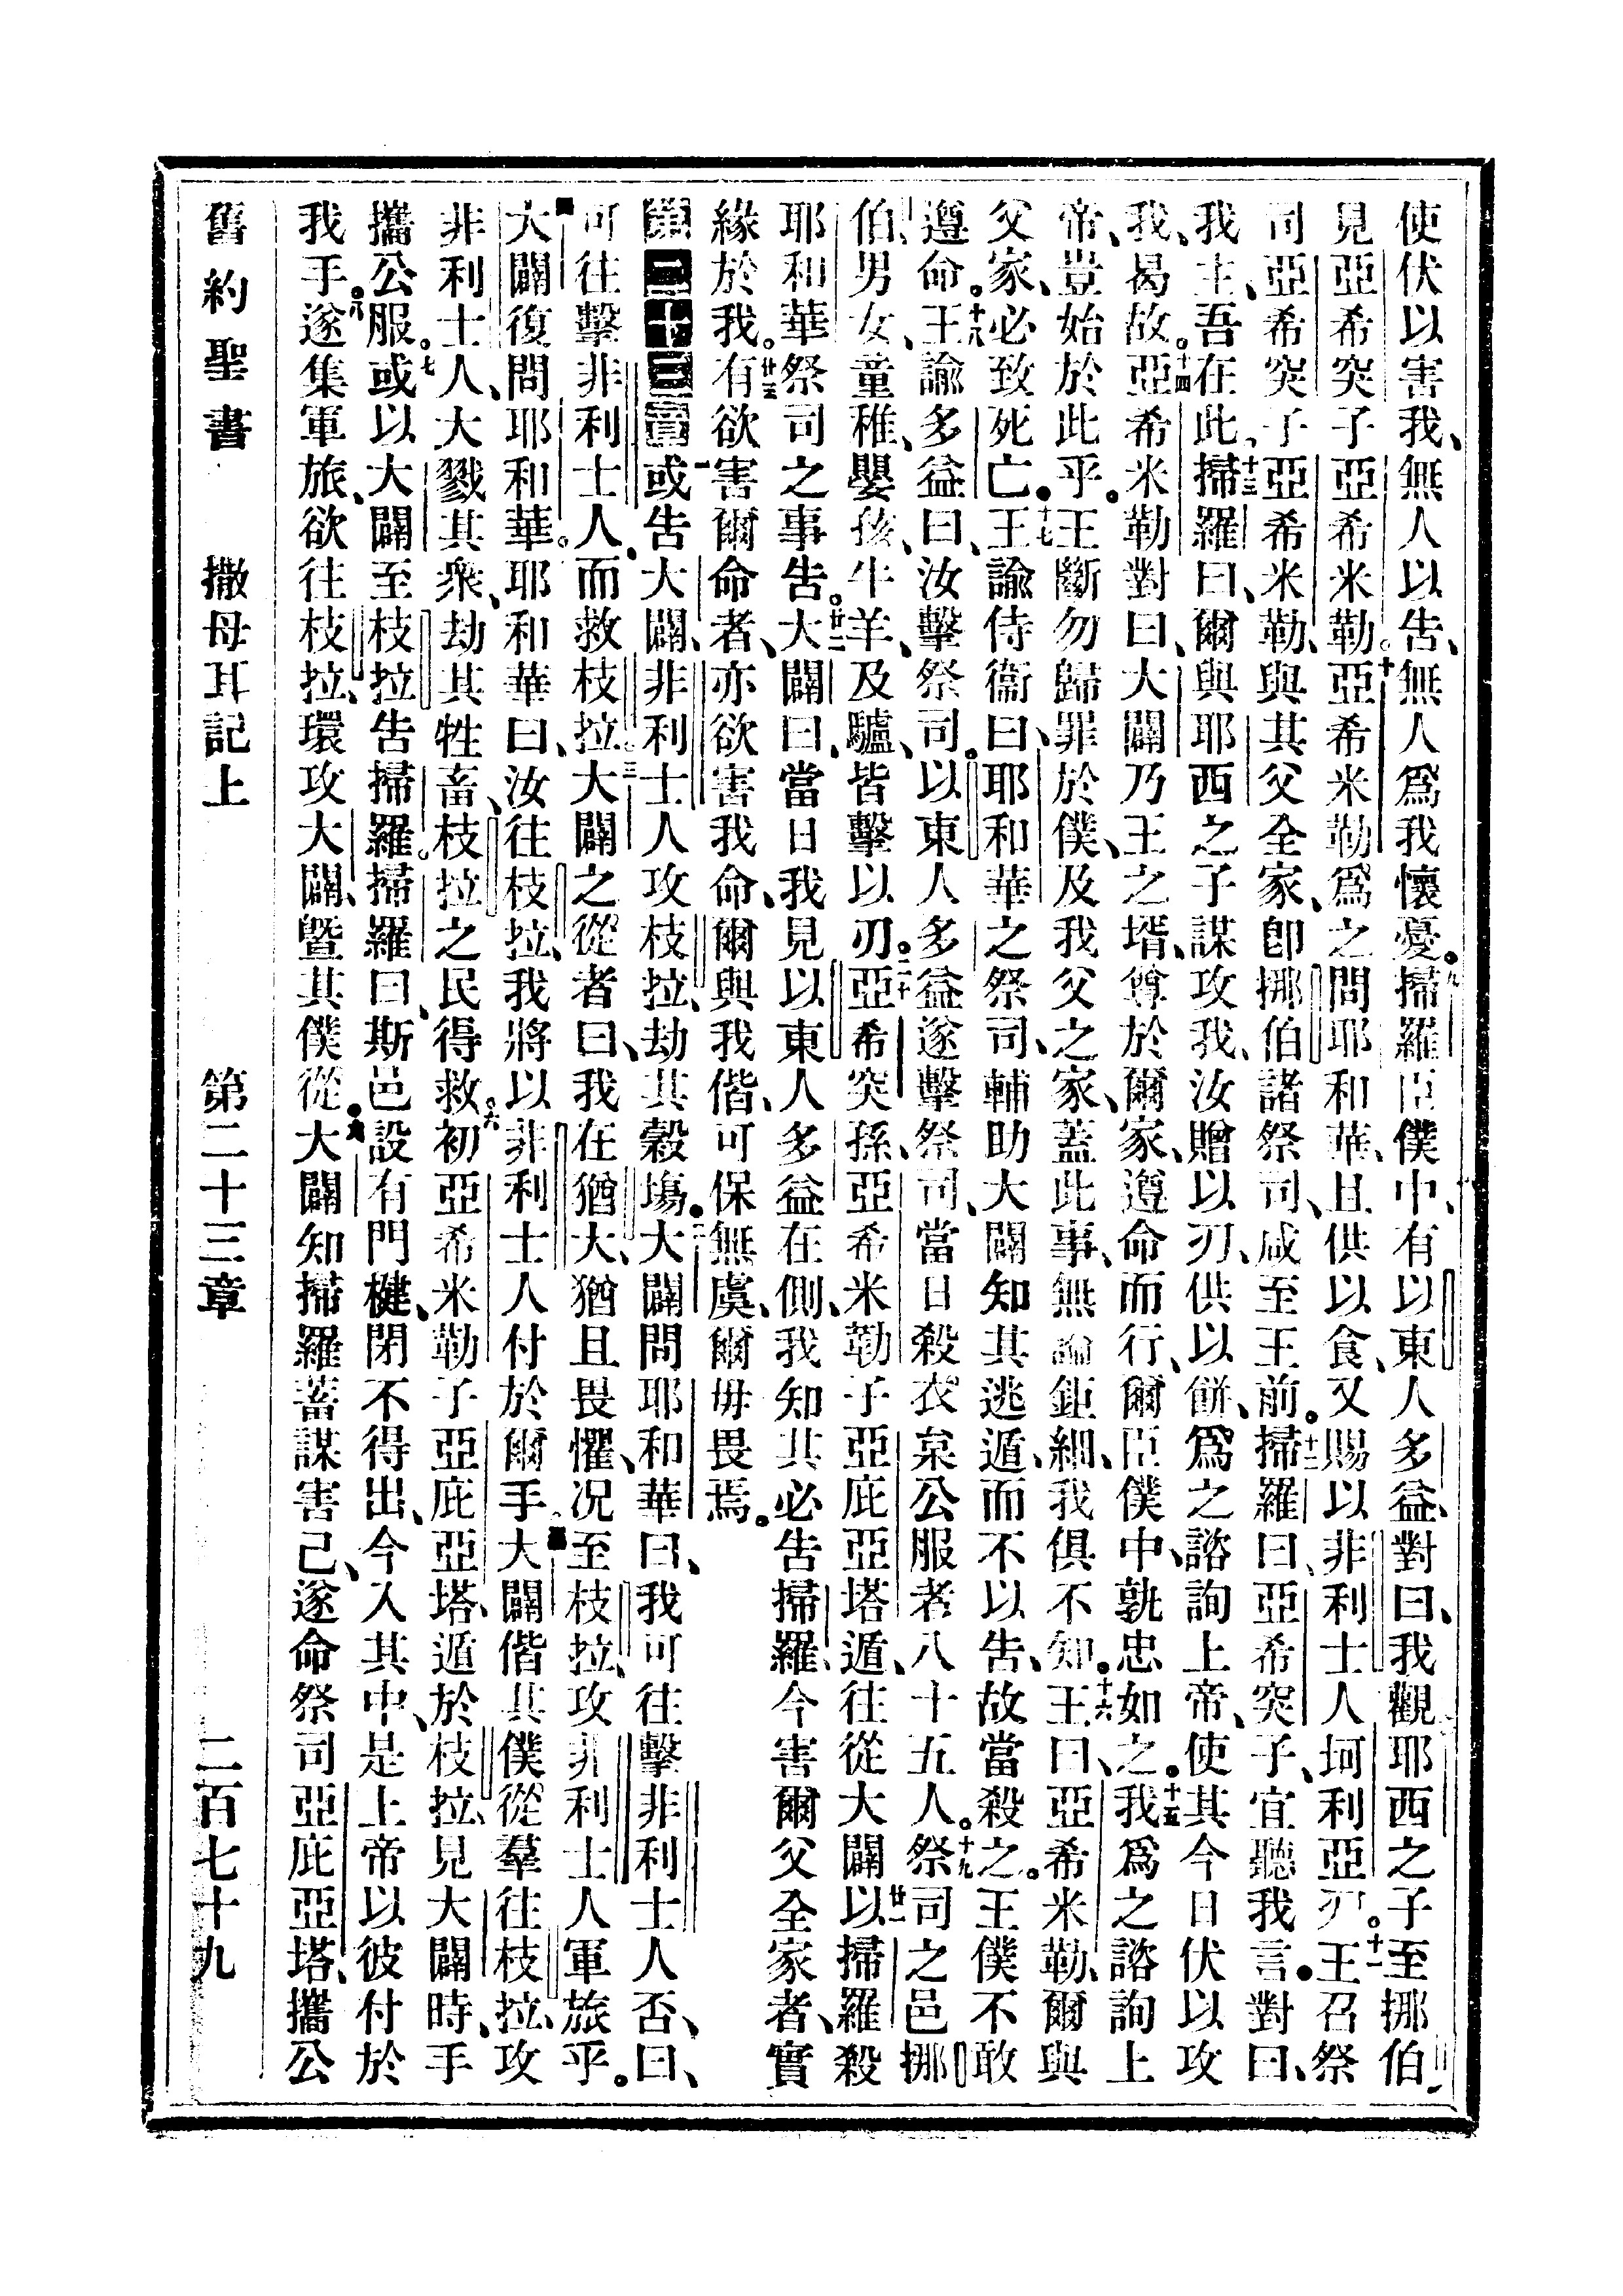 使伏以害我、無人以告、無人爲我懷憂。九掃羅臣僕中、有以東人多益、對曰、我觀耶西之子至挪伯、
見亞希突子亞希米勒。十亞希米勒爲之問耶和華、且供以食、又賜以非利士人坷利亞刃。十一王召祭
司亞希突子亞希米勒、與其父全家、卽挪伯諸祭司、咸至王前。十二掃羅曰、亞希突子、宜聽我言。對曰、
我主、吾在此、十三掃羅曰、爾與耶西之子謀攻我、汝贈以刃、供以餅、爲之諮詢上帝、使其今日伏以攻
我、曷故。十四亞希米勒對曰、大闢乃王之壻、尊於爾家、遵命而行、爾臣僕中、孰忠如之。十五我爲之諮詢上
帝、豈始於此乎。王斷勿歸罪於僕、及我父之家、蓋此事、無論鉅細、我俱不知。十六王曰、亞希米勒、爾與
父家、必致死亡。十七王諭侍衞曰、耶和華之祭司、輔助大闢、知其逃遁、而不以告、故當殺之。王僕不敢
遵命。十八王諭多益曰、汝擊祭司。以東人多益遂擊祭司、當日殺衣枲公服者八十五人。十九祭司之邑挪
伯、男女、童稚、嬰孩、牛羊、及驢、皆擊以刃。二十亞希突孫、亞希米勒子亞庇亞塔遁、往從大闢、廿一以掃羅殺
耶和華祭司之事告。廿二大闢曰、當日我見以東人多益在側、我知其必告掃羅、今害爾父全家者、實
緣於我。廿三有欲害爾命者、亦欲害我命、爾與我偕、可保無虞、爾毋畏焉。
第二十三章一或告大闢、非利士人攻枝拉、劫其穀塲。二大闢問耶和華曰、我可往擊非利士人否、曰、
可往擊非利士人、而救枝拉。三大闢之從者曰、我在猶大、猶且畏懼、况至枝拉、攻非利士人軍旅乎。
四大闢復問耶和華。耶和華曰、汝往枝拉、我將以非利士人付於爾手。五大闢偕其僕從、羣往枝拉、攻
非利士人、大戮其衆、劫其牲畜、枝拉之民得救。六初亞希米勒子亞庇亞塔、遁於枝拉、見大闢時、手
攜公服。七或以大闢至枝拉告掃羅。掃羅曰、斯邑設有門楗、閉不得出、今入其中、是上帝以彼付於
我手。八遂集軍旅、欲往枝拉、環攻大闢、曁其僕從。九大闢知掃羅蓄謀害己、遂命祭司亞庇亞塔、攜公
舊約聖書 撒母耳記上 第二十三章 二百七十九